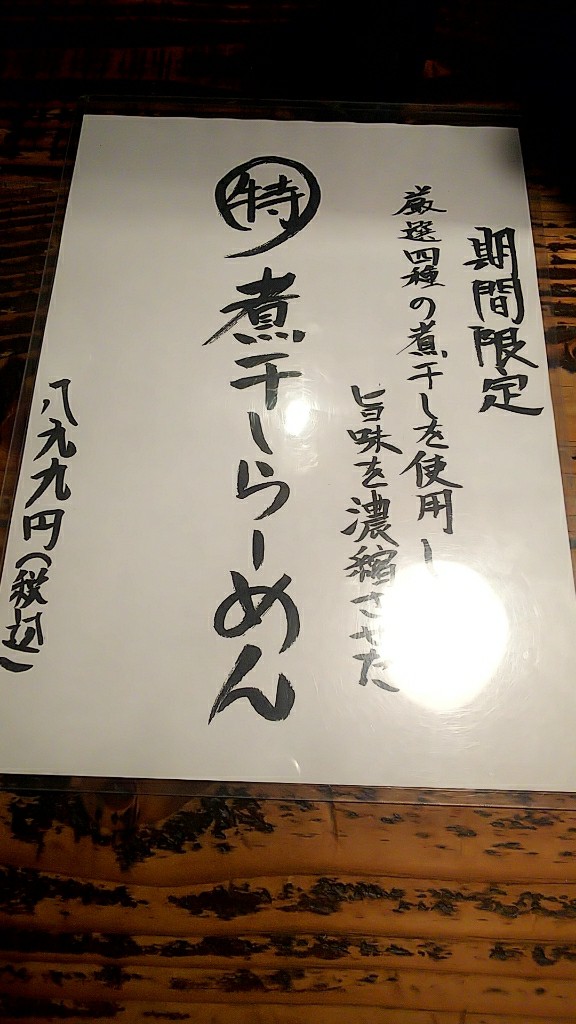 期間限定
厳選四種の煮干しを使用し
旨味を濃縮させた
特煮干しらーめん
八九九円(税込)